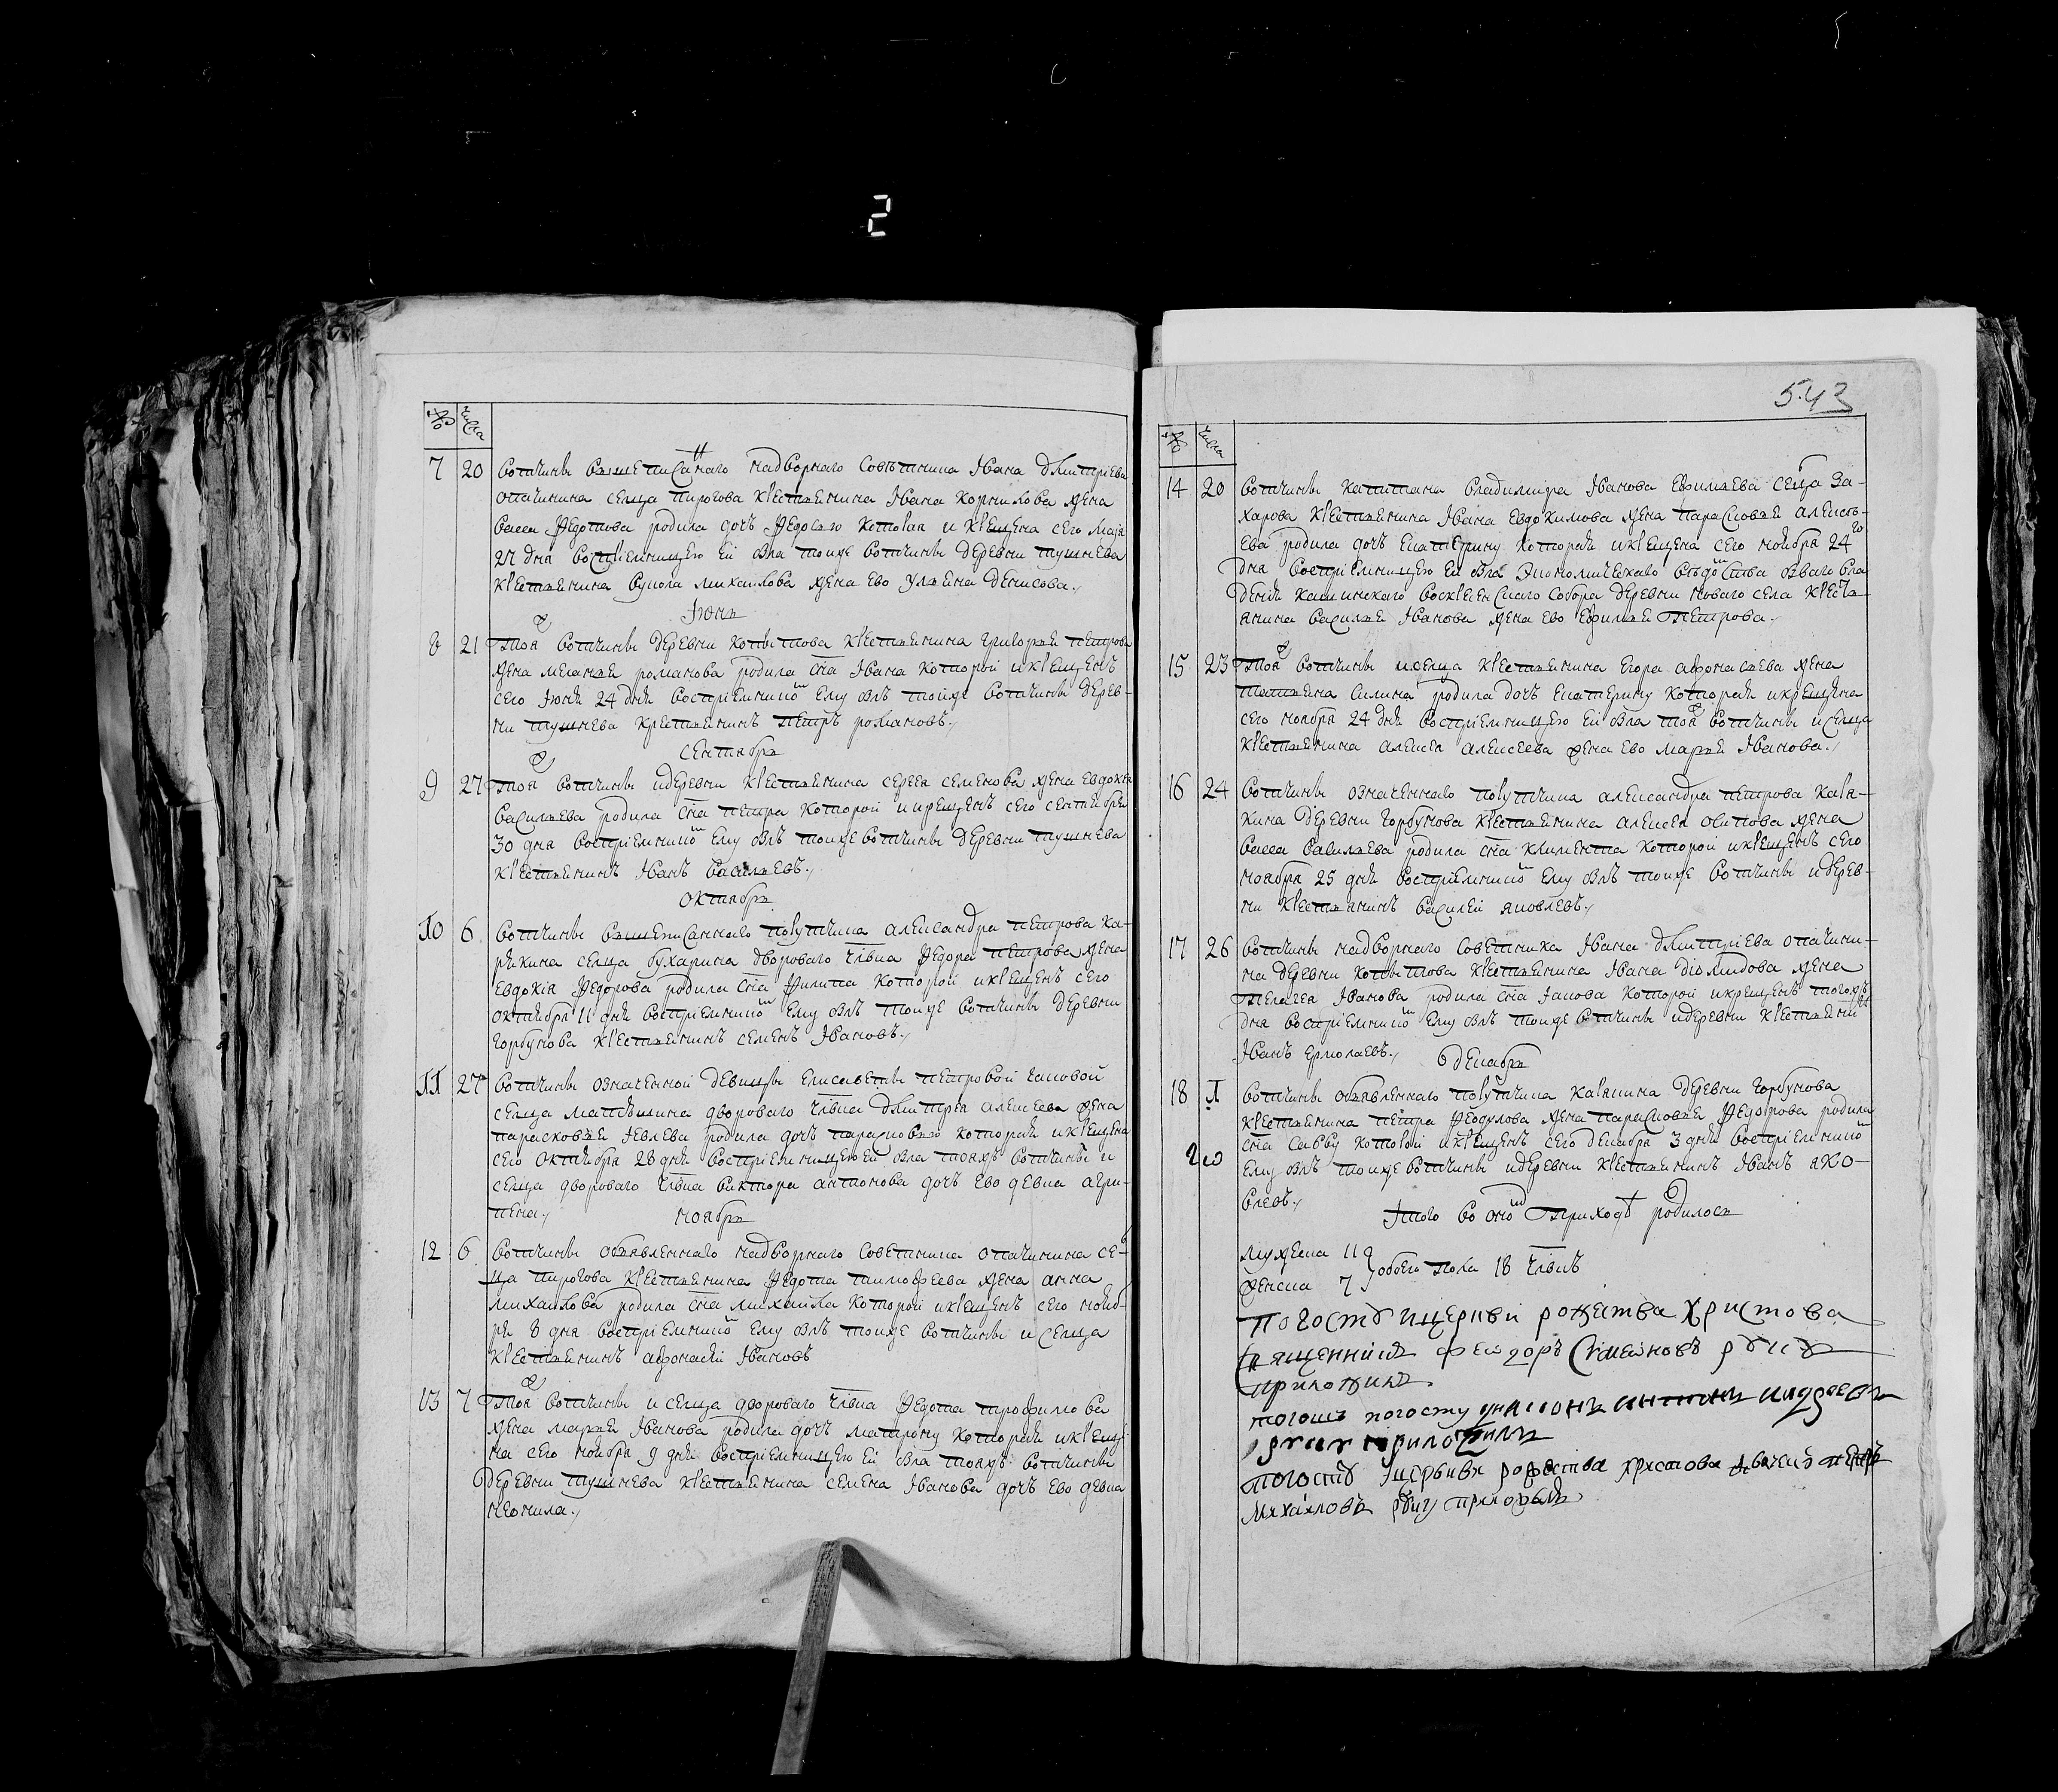 2
№ числа
7 20 вотчины вышеписаннаго надворнаго советника Iвана дмитрiева
опачинина селца пирогова крестьянина Iвана корнилова жена
васса Федотова родила дочь Федосью которая и крещена сего маiя
27 дня восприемницею ей была тоиже вотчины деревни тушнева
крестьянина вукола михаилова жена ево ульяна денисова.
Iюнь
8 21 тоя вотчины деревни копытова крестьянина григорья петрова
жена меланья романова родила сна Iвана которой и крещенъ
сего Iюня 24 дня восприемникомъ ему былъ тойже вотчины дерев-
ни тушнева крестьянинъ петръ романовъ.
сентябрь
9 27 тоя вотчины и деревни крестьянина сергея семенова жена евдокiя
васильева родила сна петра которой и крещенъ сего сентября
30 дня восприемникомъ ему былъ тоиже вотчины деревни тушнева
крестьянинъ Iванъ васильевъ.
октябрь
10 6 вотчины вышеписаннаго порутчика александра петрова ка-
рякина селца бухарина двороваго члвка Федора петрова жена
евдокiя Федорова родила сна Филипа которой и крещенъ сего
октября 11 дня восприемникомъ ему былъ тоиже вотчины деревни
горбунова крестьянинъ семенъ Iвановъ.
11 27 вотчины означенной девицы елисаветы петровой
селца матюшина двороваго члвка дмитрея алексеева жена
парасковья Iевлева родила дочь парасковью которая и крещена
сего октября 28 дня восприемницею ей была тояжъ вотчины и
селца двороваго члвка виктора антонова дочь ево девка агри-
пена.
ноябрь
12 6 вотчины объявленнаго надворнаго советника опачинина се-
ца пирогова крестьянина Федота тимофеева жена анна
михаилова родила сна михаила которой и крещенъ сего нояб-
ря 8 дня восприемникомъ ему былъ тоиже вотчины и селца
крестьянинъ афонасей Iвановъ
13 7 тоя вотчины и селца двороваго члвка Федота трофимова
жена марья Iванова родила дочь матрону которая и креще
на сего ноября 9 дня восприемницею ей была тояжъ вотчины
деревни тушнева крестьянина семена Iванова дочь ево девка
неонила.
543
№ числа
14 20 вотчины капитана владимира Iванова ефимьева селца за-
харова крестьянина Iвана евдокимова жена парасковья алексе-
ева родила дочь екатерину которая и крещена сего ноября 24го
дня восприемницею ей была экономическаго ведомства бываго вла
дения кашинскаго воскресенскаго собора деревни новаго села кресть-
янина василья Iванова жена ево ефимья петрова.
15 23 тоя вотчины и селца крестьянина егора афонасьева жена
татьяна силина родила дочь екатерину которая и крещена
сего ноября 24 дня восприемницею ей была тоя вотчины и селца
крестьянина алексея алексеева жена ево марья Iванова.
16 24 вотчины означеннаго порутчика александра петрова каря-
кина деревни горбунова крестьянина алексея осипова жена
васса васильева родила сна климента которой и крещенъ сего
ноября 25 дня восприемникомъ ему былъ тоиже вотчины и дерев-
ни крестьянинъ василей яковлевъ.
17 26 вотчины надворнаго советника Iвана дмитрiева опачини-
на деревни копытова крестьянина Iвана дiомидова жена
пелагея Iванова родила сна Iакова которой и крещенъ тогожъ
дня восприемникомъ ему былъ тоиже вотчины и деревни крестьянинъ
Iванъ ермолаевъ.
декабрь
18 1 вотчины объявленнаго порутчика карякина деревни горбунова
крестьянина петра Феодулова жена парасковья Федорова родила
сна савву которой и крещенъ сего декабря 3 дня восприемникомъ
2го ему былъ тоиже вотчины и деревни крестьянинъ Iванъ яко-
влевъ.
Iтого во ономъ приходе родилось
мужеска 11
женска 7 обоего пола 18 члвкъ
погоста и церкви рожества христова
священникъ феодоръ Симеоновъ руку
приложилъ.
тогожъ погосту антонъ
руку приложилъ
погоста I церькви рожества христова петръ
михаиловъ руку приложилъ